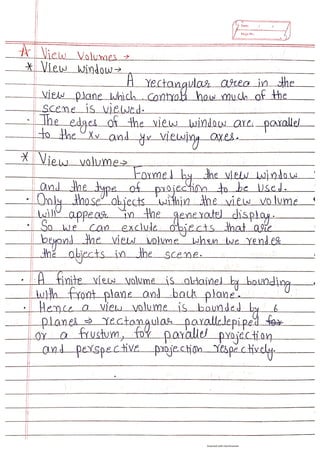 A View Volumes →
* View Window →
A rectangular area in the
view plane which controls how much of the
scene is viewed.
· The edges of the view window are parallel
to the Xv and yv viewing axes.
* View volume →
Formed by the view window
and the type of projection to be used.
· Only those objects within the view volume
will appear in the generated display.
· So we can exclude objects that are
beyond the view volume when we render
the objects in the scene.
· A finite view volume is obtained by bounding
with front plane and back plane.
· Hence a view volume is bounded by 6
planes ⇒ rectangular parallelepiped for
or a frustum, for parallel projection
and perspective projection respectively.